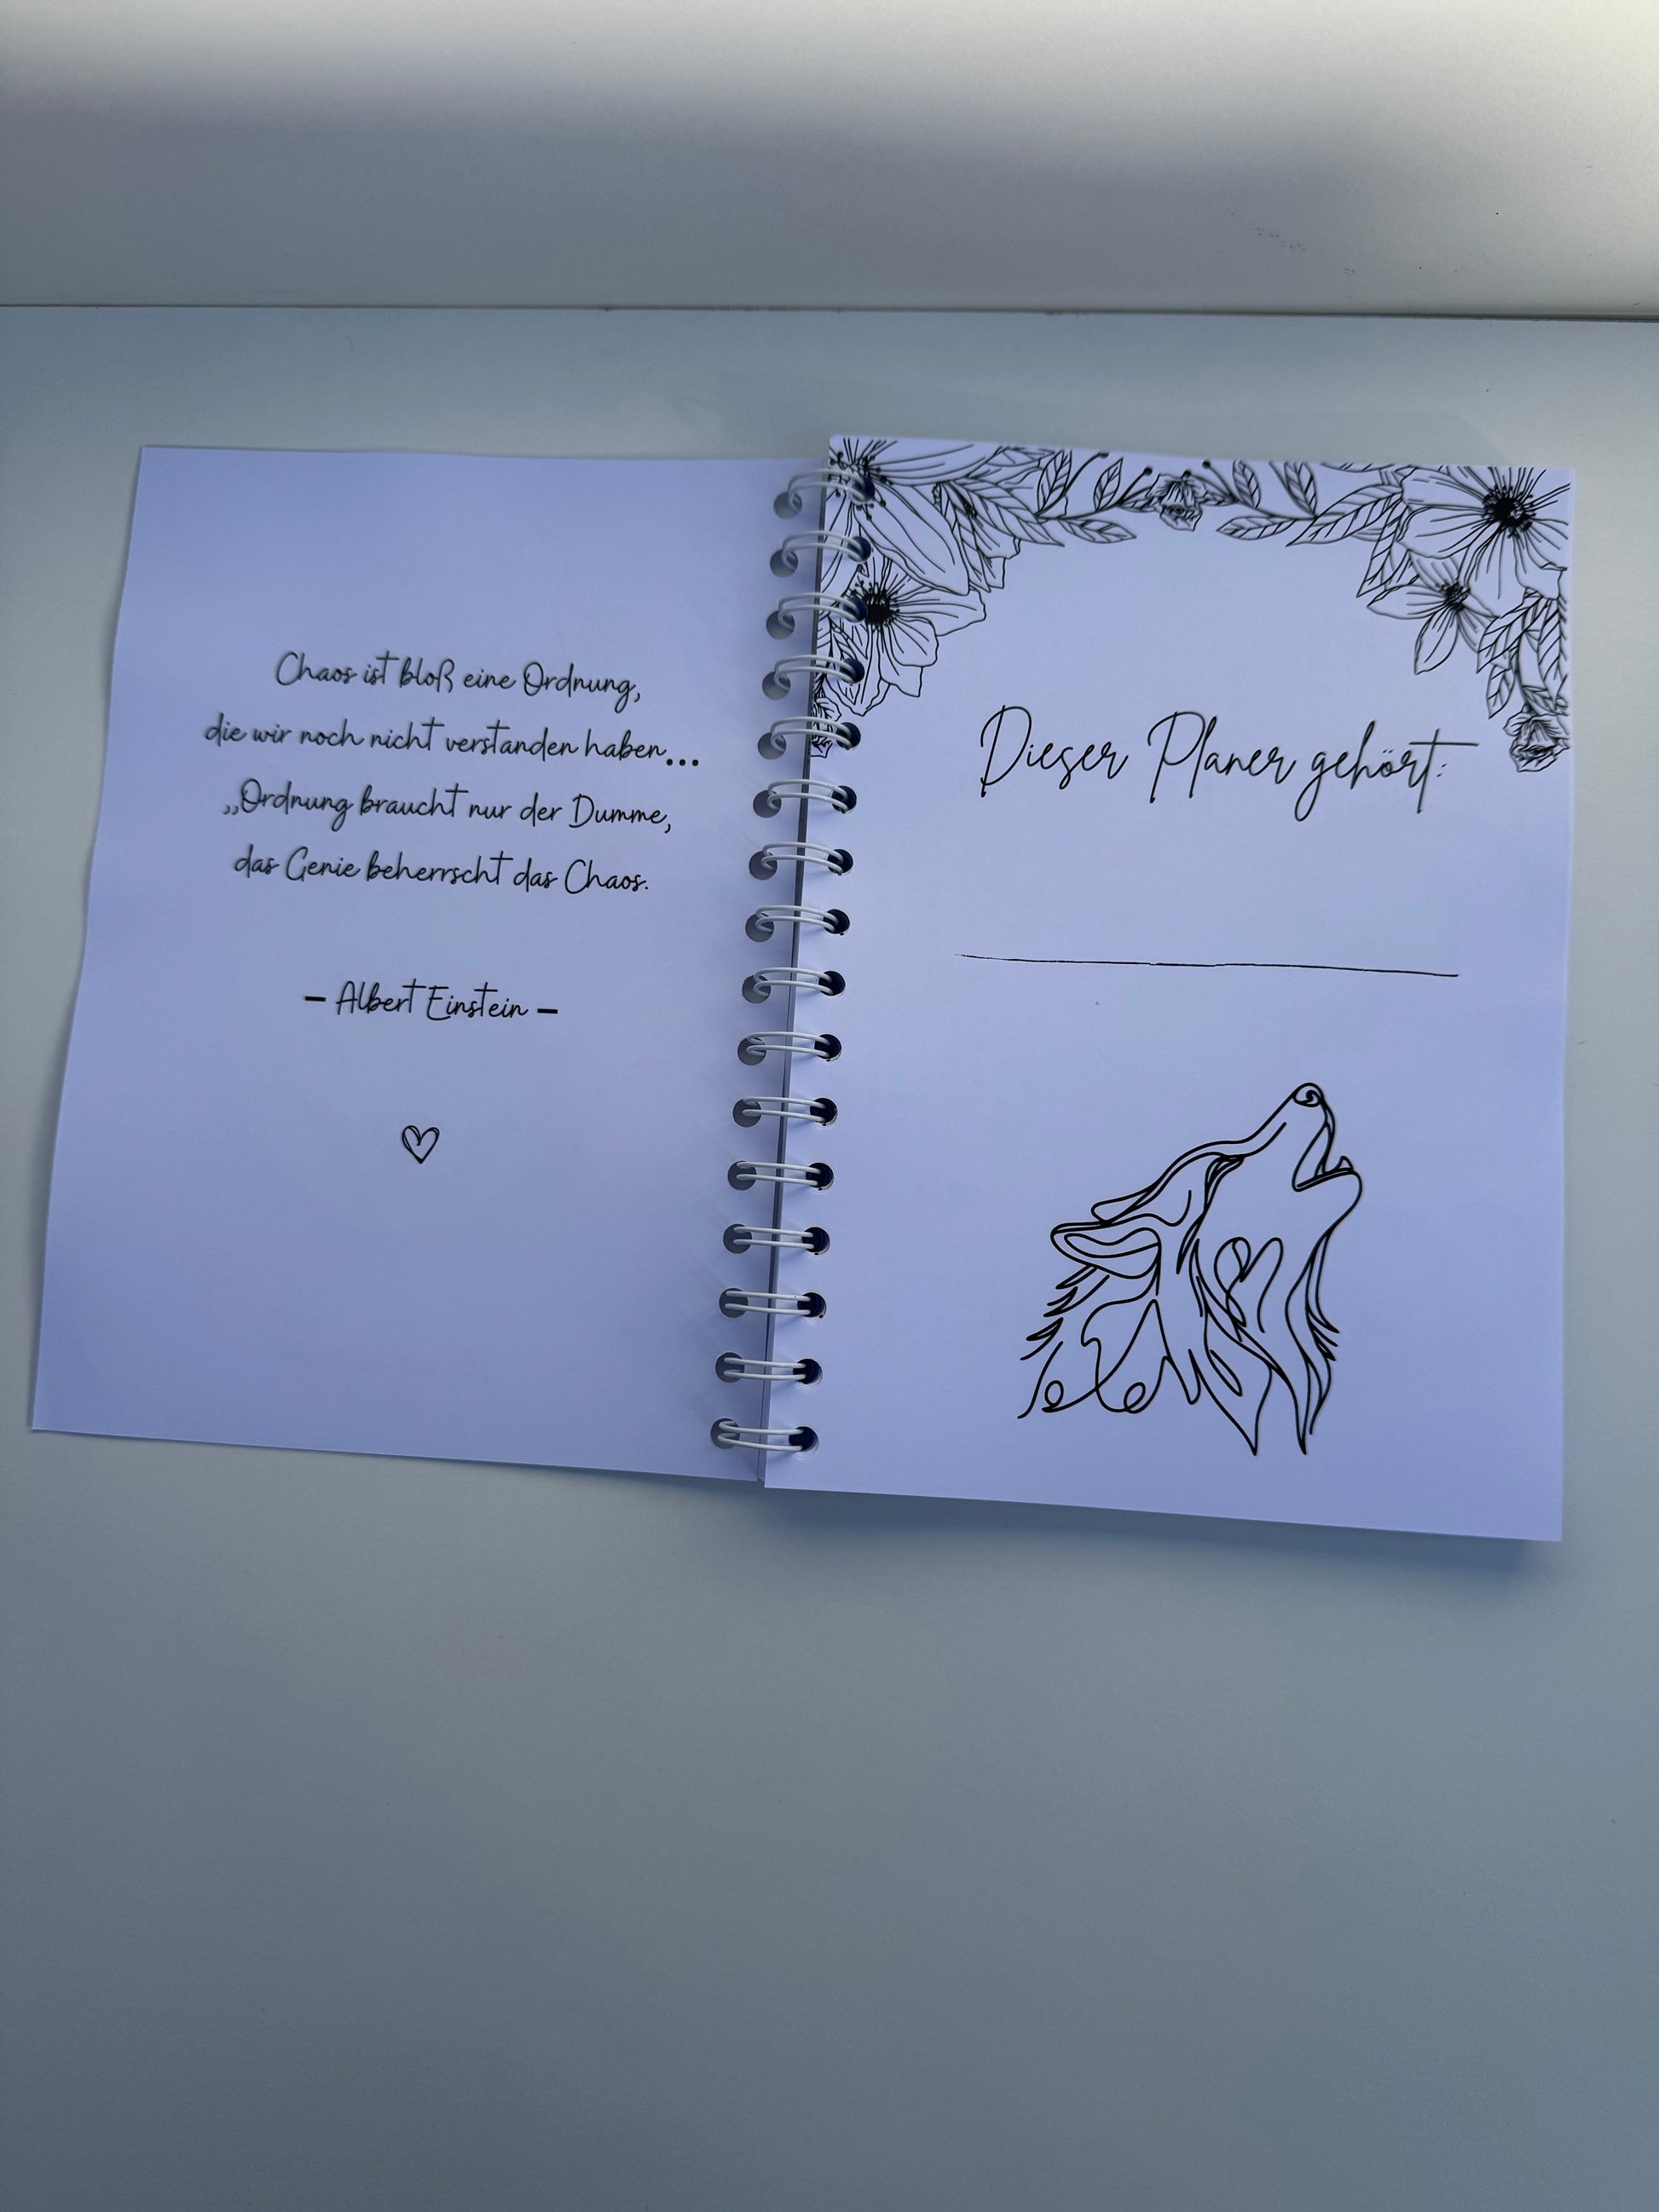 Chaos ist bloß eine Ordnung,
die wir noch nicht verstanden haben...
„Ordnung braucht nur der Dumme,
das Genie beherrscht das Chaos.
– Albert Einstein –
Dieser Planer gehört: